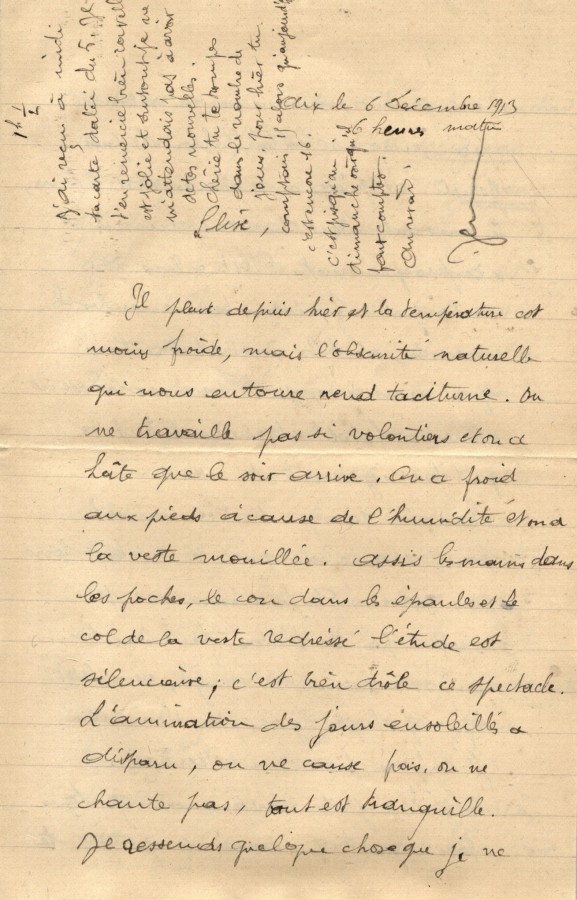 Aix le 6 Décembre 1913
6 heures matin
Élise,
Il pleut depuis hièr et la température est
moins froide, mais l'obscurité naturelle
qui nous entoure rend taciturne. On
ne travaille pas si volontiers et on a
hâte que le soir arrive. On a froid
aux pieds à cause de l'humidité et on a
la veste mouillée. Assis les mains dans
les poches, le cou dans les épaules et le
col de la veste redréssé l'étude est
silencieuse; c'est bièn drôle ce spectacle.
L'animation des jours ensoleillés a
disparu, on ne cause pas, on ne
chante pas, tout est tranquille.
Je ressends quelque chose que je ne
1h 1/2
J'ai reçu à midi
ta carte datée du 5. Je
t'en remercie bièn car elle
est jolie et surtout je ne
m'attendais pas à avoir
de tes nouvelles.
Chérie tu te trompes
dans le nombre de
jours. pour hièr tu
comptais 17 alors qu'aujourd'hui
c'est encore 16.
C'est jusqu'au
dimanche soir qu'il
faut compter.
Au revoir.